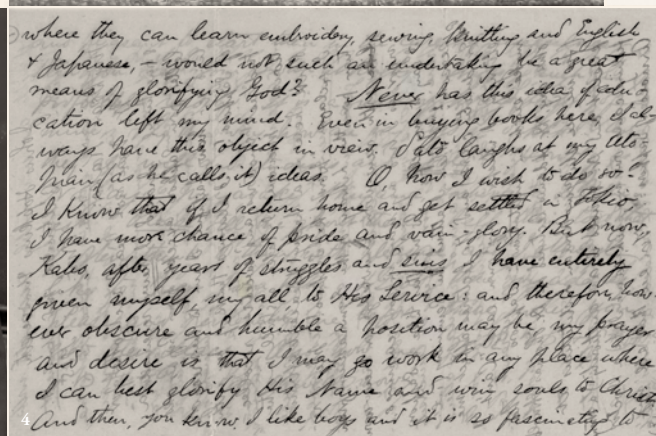 where they can learn embroidery, sewing, knitting and English
& Japanese, – would not such an undertaking be a great
means of glorifying God? Never has this idea of edu-
cation left my mind. Even in buying books here, I al-
ways have this object in view. Sato laughs at my Uto-
pian (as he calls it) ideas. O, how I wish to do so!
I know that if I return home and get settled in Tokio
I have more chance of pride and vain-glory. But now,
Kates, after years of struggles and sins I have entirely
given myself, my all, to His Service: and therefore, how-
ever obscure and humble a position may be, my prayer
and desire is that I may go work in any place where
I can best glorify His Name and win souls to Christ
And then, you know I like boys and it is so fascinating to
4